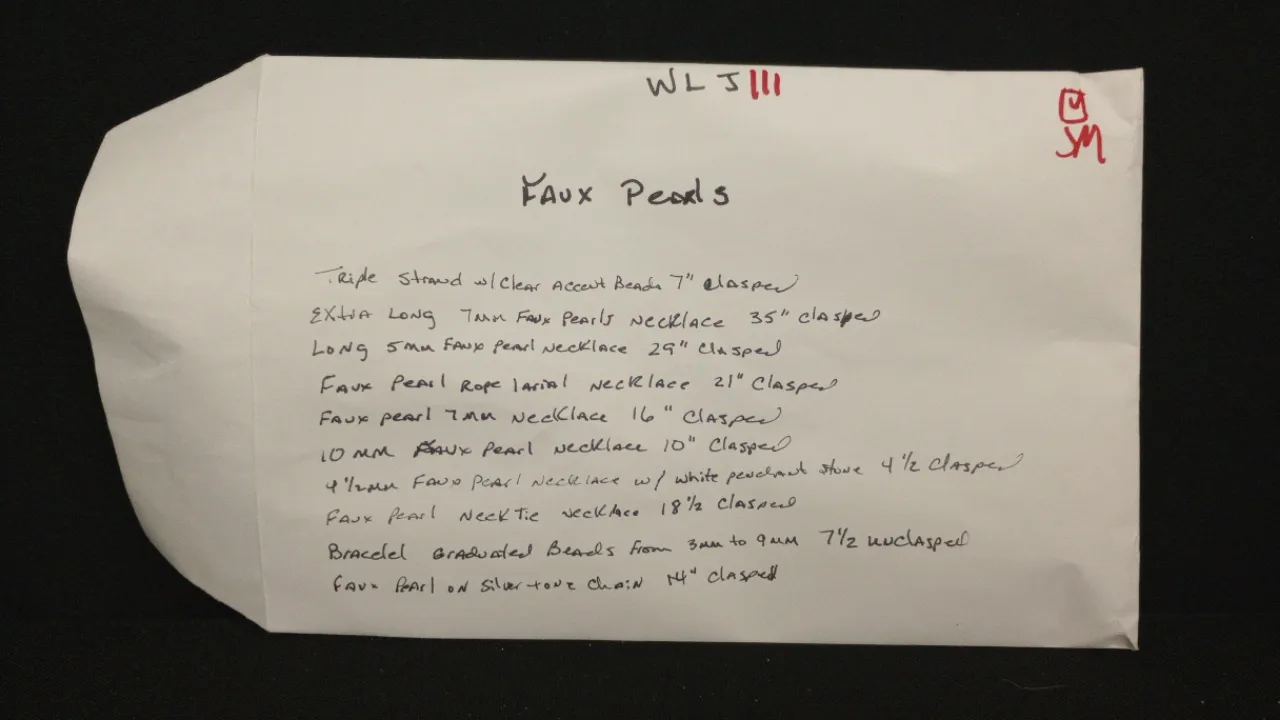 WLJIII
M
SM
Faux Pearls
Triple Strand w/Clear Accent Beads 7" Clasped
Extra Long 7mm Faux Pearls Necklace 35" Clasped
Long 5mm Faux Pearl Necklace 29" Clasped
Faux Pearl Rope larial Necklace 21" Clasped
Faux pearl 7mm Necklace 16" Clasped
10 mm Faux Pearl Necklace 10" Clasped
4 1/2mm Faux Pearl Necklace w/ white pendant stone 4 1/2 Clasped
Faux Pearl Neck Tie Necklace 18 1/2 Clasped
Bracelel Graduated Beads from 3mm to 9mm 7 1/2 unclasped
Faux Pearl on Silver-tone Chain 14" clasped